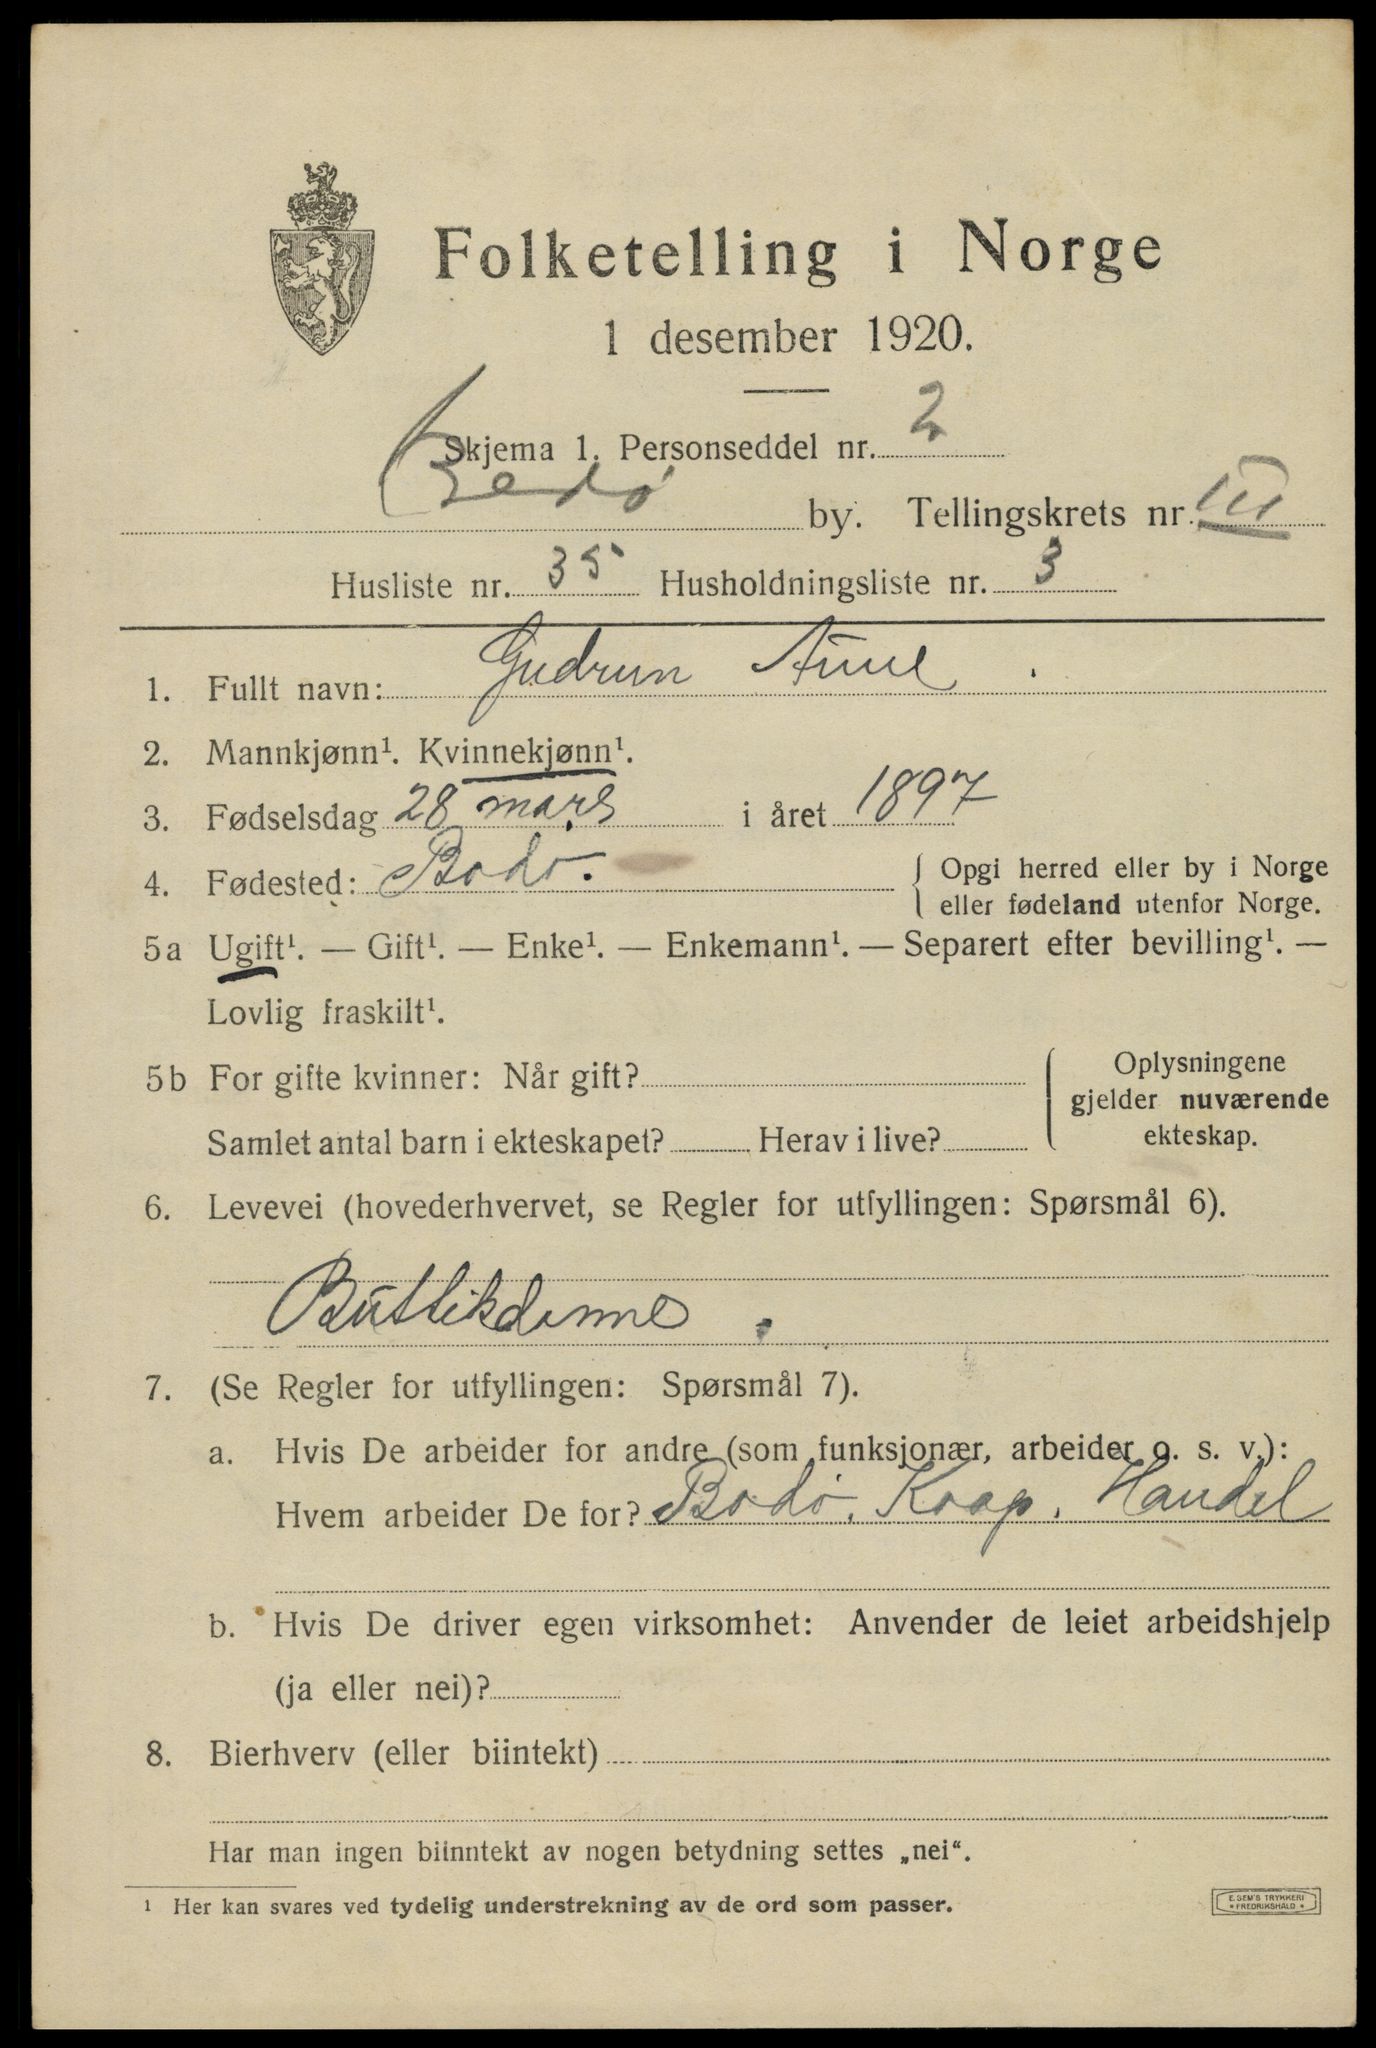 Folketelling i Norge
1 desember 1920.
Skjema 1. Personseddel nr. 2
Bodø by. Tellingskrets nr. III
Husliste nr. 35 Husholdningsliste nr. 3
1. Fullt navn: Gudrun Aune.
2. Mannkjønn¹. Kvinnekjønn¹.
3. Fødselsdag 28 mars i året 1897
4. Fødested: Bodø. { Opgi herred eller by i Norge
eller fødeland utenfor Norge.
5a Ugift¹. — Gift¹. — Enke¹. — Enkemann¹. — Separert efter bevilling¹. —
Lovlig fraskilt¹.
5b For gifte kvinner: Når gift? { Oplysningene
gjelder nuværende
Samlet antal barn i ekteskapet? Herav i live? ekteskap.
6. Levevei (hovederhvervet, se Regler for utfyllingen: Spørsmål 6).
Buttikdame.
7. (Se Regler for utfyllingen: Spørsmål 7).
a. Hvis De arbeider for andre (som funksjonær, arbeider o. s. v.):
Hvem arbeider De for? Bodø. Koop. Handel
b. Hvis De driver egen virksomhet: Anvender de leiet arbeidshjelp
(ja eller nei)?
8. Bierhverv (eller biintekt)
Har man ingen biinntekt av nogen betydning settes „nei“.
¹ Her kan svares ved tydelig understrekning av de ord som passer.
E. SEM'S TRYKKERI
* FREDRIKSHALD *